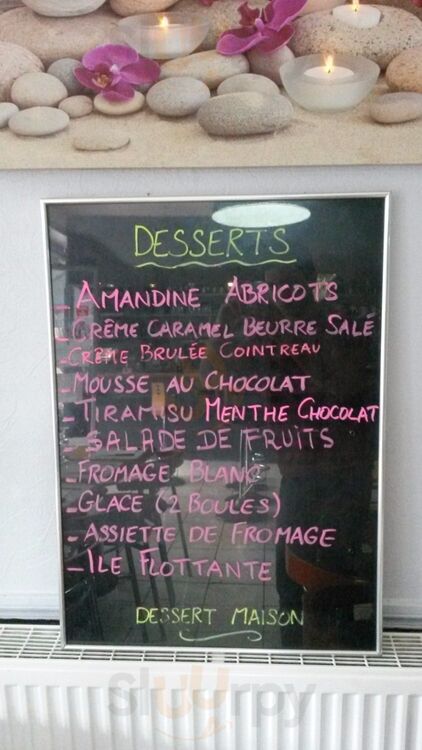 DESSERTS
- AMANDINE ABRICOTS
- CRÊME CARAMEL BEURRE SALÉ
- CRÊME BRULÉE COINTREAU
- MOUSSE AU CHOCOLAT
- TIRAMISU MENTHE CHOCOLAT
- SALADE DE FRUITS
- FROMAGE BLANC
- GLACE (2 BOULES)
- ASSIETTE DE FROMAGE
- ILE FLOTTANTE
DESSERT MAISON
Sluurpy